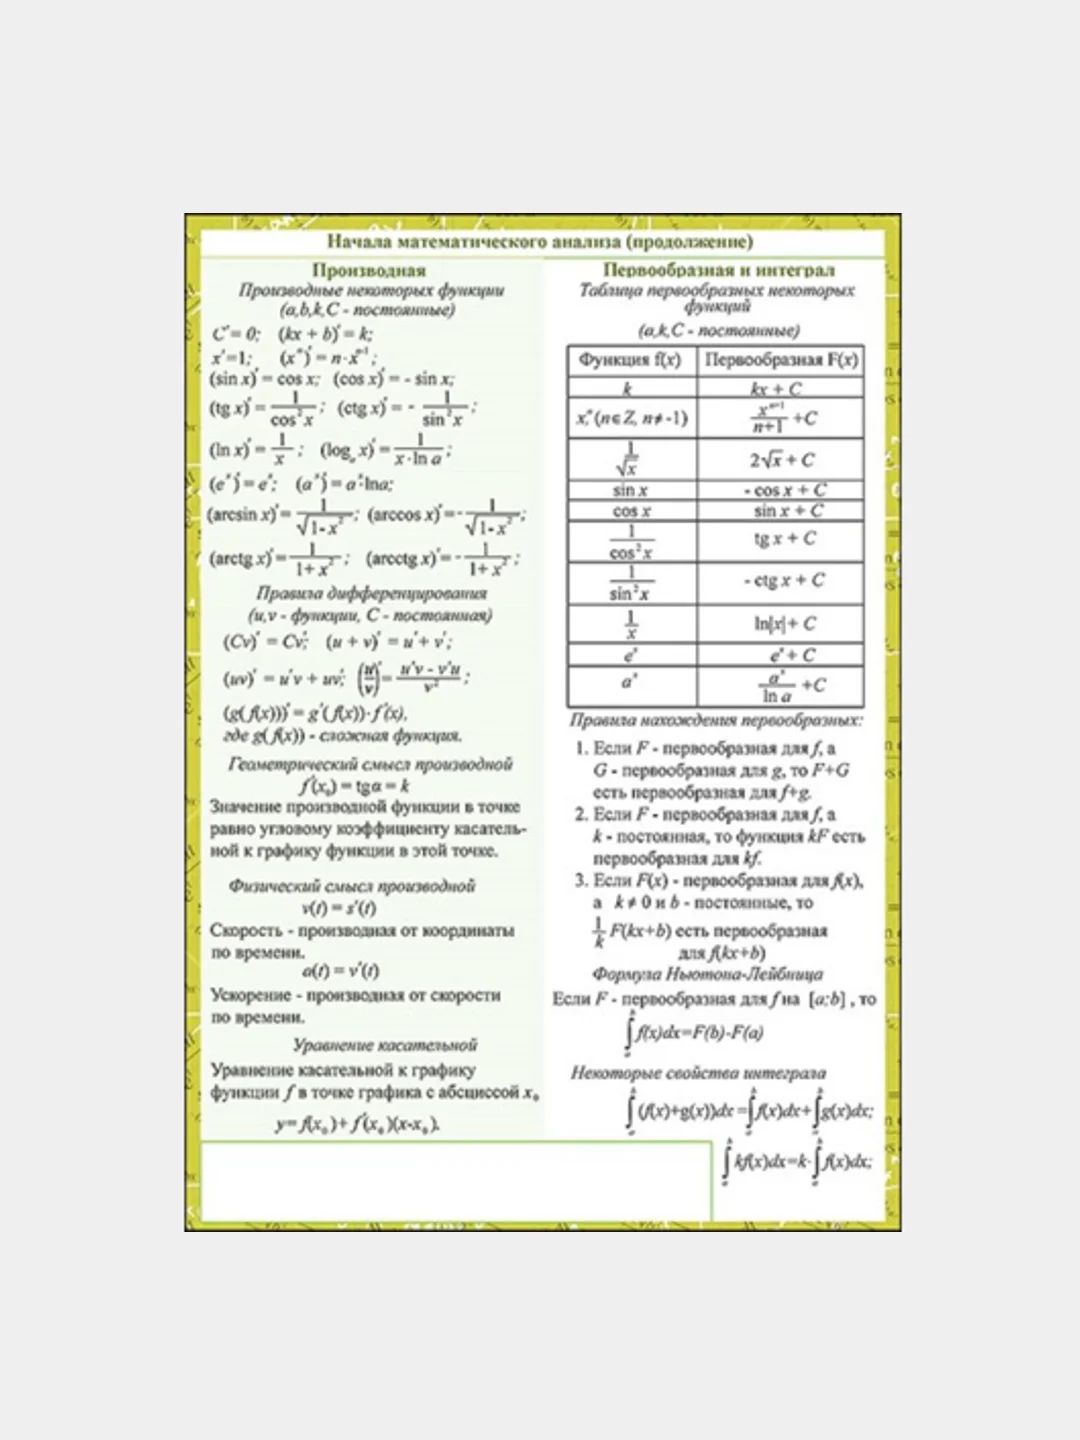 Начала математического анализа (продолжение)
Производная
Производные некоторых функции
(a,b,k,C - постоянные)
C′= 0; (kx + b)′ = k;
x′=1; (xⁿ)′ = n·xⁿ⁻¹;
(sin x)′ = cos x; (cos x)′ = - sin x;
(tg x)′ = 1/cos²x; (ctg x)′ = - 1/sin²x;
(ln x)′ = 1/x; (logₐ x)′ = 1/(x·ln a);
(eˣ)′ = eˣ; (aˣ)′ = aˣ·lna;
(arcsin x)′ = 1/√(1-x²); (arccos x)′ = - 1/√(1-x²);
(arctg x)′ = 1/(1+x²); (arcctg x)′ = - 1/(1+x²);
Правила дифференцирования
(u,v - функции, C - постоянная)
(Cv)′ = Cv′; (u + v)′ = u′+ v′;
(uv)′ = u′v + uv′; (u/v)′ = (u′v - v′u)/v²;
(g(f(x)))′ = g′(f(x))·f′(x),
где g(f(x)) - сложная функция.
Геометрический смысл производной
f′(x₀) = tgα = k
Значение производной функции в точке
равно угловому коэффициенту касатель-
ной к графику функции в этой точке.
Физический смысл производной
v(t) = s′(t)
Скорость - производная от координаты
по времени.
a(t) = v′(t)
Ускорение - производная от скорости
по времени.
Уравнение касательной
Уравнение касательной к графику
функции f в точке графика с абсциссой x₀
y= f(x₀)+ f′(x₀)(x-x₀).
Первообразная и интеграл
Таблица первообразных некоторых
функций
(a,k,C - постоянные)
Функция f(x) Первообразная F(x)
k kx + C
xⁿ, (n∈Z, n≠-1) xⁿ⁺¹/(n+1) +C
1/√x 2√x + C
sin x - cos x + C
cos x sin x + C
1/cos²x tg x + C
1/sin²x - ctg x + C
1/x ln|x|+ C
eˣ eˣ+ C
aˣ aˣ/ln a +C
Правила нахождения первообразных:
1. Если F - первообразная для f, а
G - первообразная для g, то F+G
есть первообразная для f+g.
2. Если F - первообразная для f, а
k - постоянная, то функция kF есть
первообразная для kf.
3. Если F(x) - первообразная для f(x),
а k ≠ 0 и b - постоянные, то
1/k F(kx+b) есть первообразная
для f(kx+b)
Формула Ньютона-Лейбница
Если F - первообразная для f на [a;b] , то
∫ₐᵇ f(x)dx=F(b)-F(a)
Некоторые свойства интеграла
∫ₐᵇ (f(x)+g(x))dx =∫ₐᵇ f(x)dx+∫ₐᵇ g(x)dx;
∫ₐᵇ kf(x)dx=k·∫ₐᵇ f(x)dx;